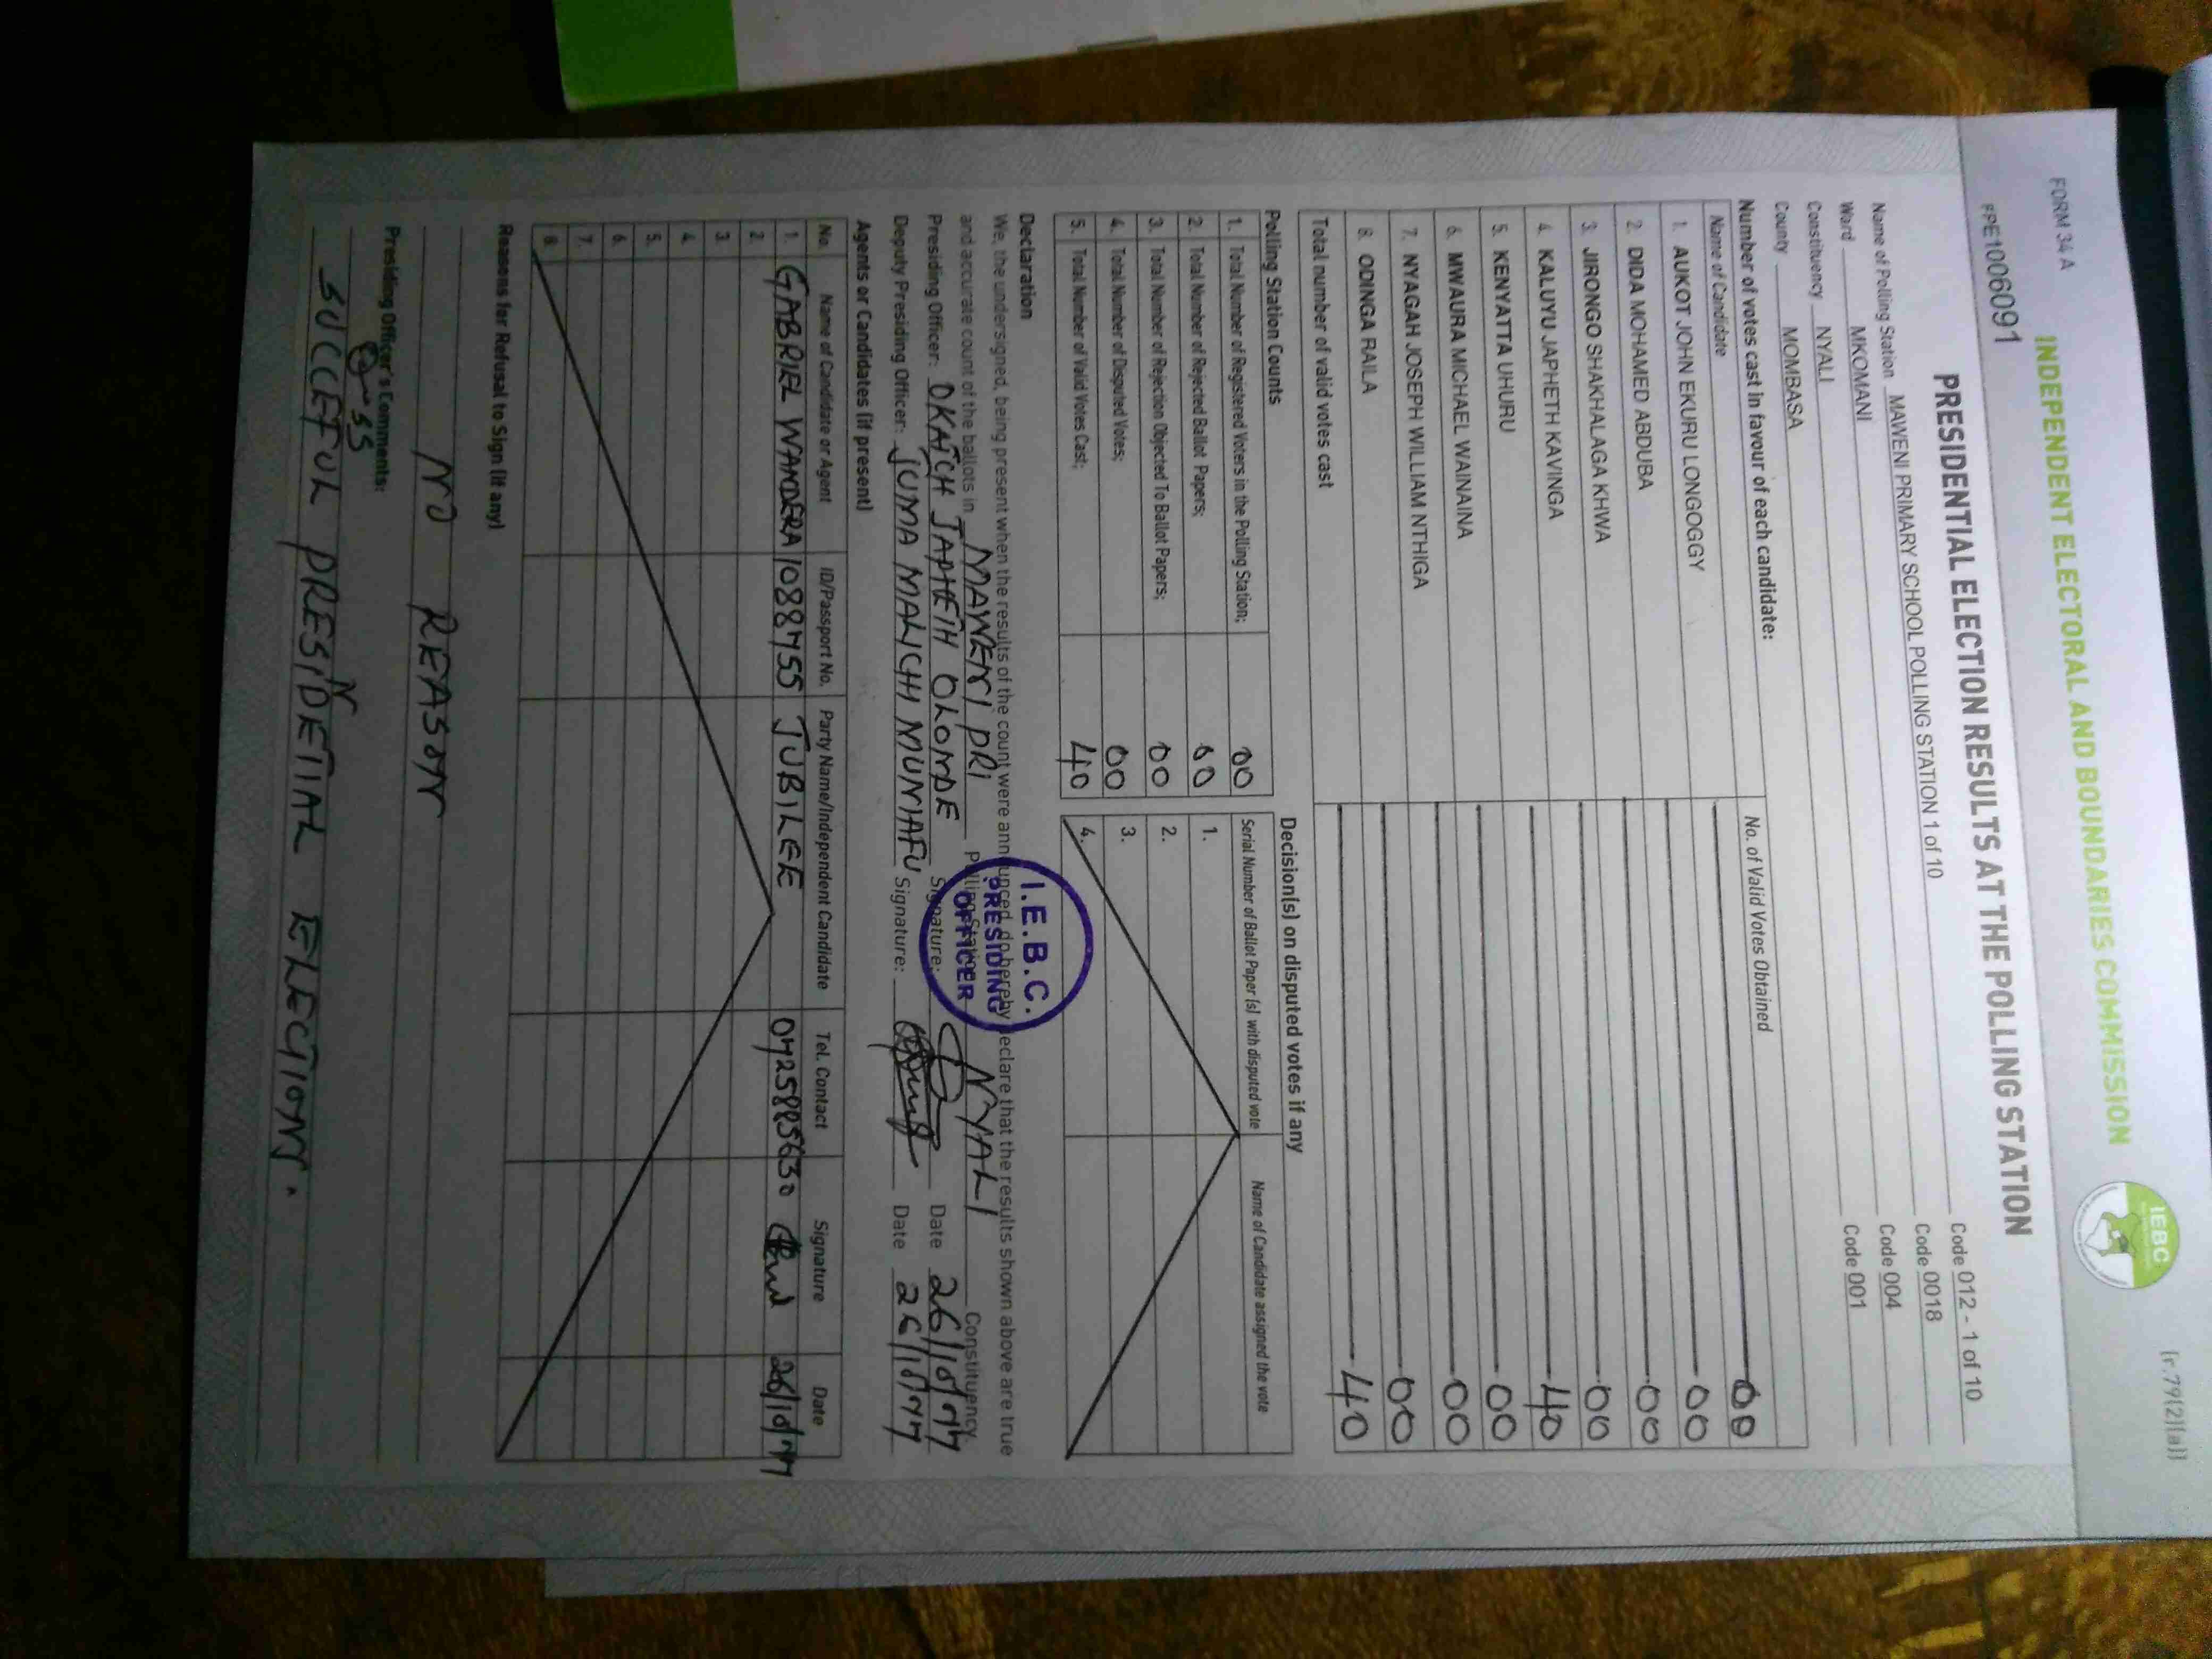 FORM 34 A
(r.79(2)(a))
INDEPENDENT ELECTORAL AND BOUNDARIES COMMISSION
IEBC
PPE1006091
PRESIDENTIAL ELECTION RESULTS AT THE POLLING STATION
Name of Polling Station MAWENI PRIMARY SCHOOL POLLING STATION 1 of 10 Code 012 - 1 of 10
Ward MKOMANI Code 0018
Constituency NYALI Code 004
County MOMBASA Code 001
Number of votes cast in favour of each candidate:
Name of Candidate No. of Valid Votes Obtained
1. AUKOT JOHN EKURU LONGOGGY 00
2. DIDA MOHAMED ABDUBA 00
3. JIRONGO SHAKHALAGA KHWA 00
4. KALUYU JAPHETH KAVINGA 00
5. KENYATTA UHURU 40
6. MWAURA MICHAEL WAINAINA 00
7. NYAGAH JOSEPH WILLIAM NTHIGA 00
8. ODINGA RAILA 00
Total number of valid votes cast 40
Polling Station Counts
1. Total Number of Registered Voters in the Polling Station; 00
2. Total Number of Rejected Ballot Papers; 00
3. Total Number of Rejection Objected To Ballot Papers; 00
4. Total Number of Disputed Votes; 00
5. Total Number of Valid Votes Cast; 40
Decision(s) on disputed votes if any
Serial Number of Ballot Paper (s) with disputed vote Name of Candidate assigned the vote
1.
2.
3.
4.
Declaration
We, the undersigned, being present when the results of the count were announced, do hereby declare that the results shown above are true
and accurate count of the ballots in MAWENI PRI Polling Station NYALI Constituency
Presiding Officer: OKAICH JAPHETH OLONDE Signature: Date 26/10/17
Deputy Presiding Officer: JUMA MALICHI MUNIAFU Signature: Date 26/10/17
I.E.B.C.
PRESIDING
OFFICER
Agents or Candidates (if present)
No. Name of Candidate or Agent ID/Passport No. Party Name/Independent Candidate Tel. Contact Signature Date
1. GABRIEL WANDERA 10887455 JUBILEE 0725885630 26/10/17
2.
3.
4.
5.
6.
7.
8.
Reasons for Refusal to Sign (if any)
NO REASON
Presiding Officer's Comments:
SS
SUCCEFUL PRESIDETIAL ELECTIONS.
N